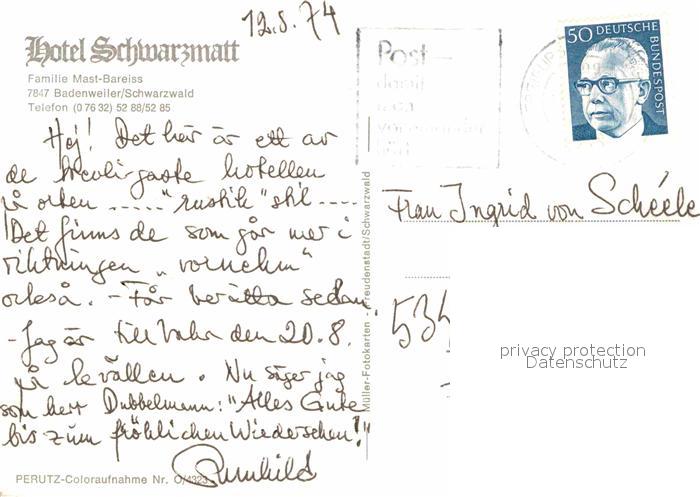 12.8.74
Hotel Schwarzmatt
Familie Mast-Bareiss
7847 Badenweiler/Schwarzwald
Telefon (0 76 32) 52 88/52 85
Hej! Det här är ett av
de trevligaste hotellen
på orten ..... "rustik" stil ....
Det finns de som går mer i
riktningen „vornehm"
också. - Får berätta sedan.
- Jag är till Lahr den 20.8.
på kvällen. Nu säger jag
som herr Dubbelmann: "Alles Gute
bis zum fröhlichen Wiedersehen!"
Gunhild
PERUTZ-Coloraufnahme Nr. O/4323
Müller-Fotokarten - Freudenstadt/Schwarzwald
Post—
damit
50 DEUTSCHE
BUNDESPOST
Frau Ingrid von Schéele
534
privacy protection
Datenschutz